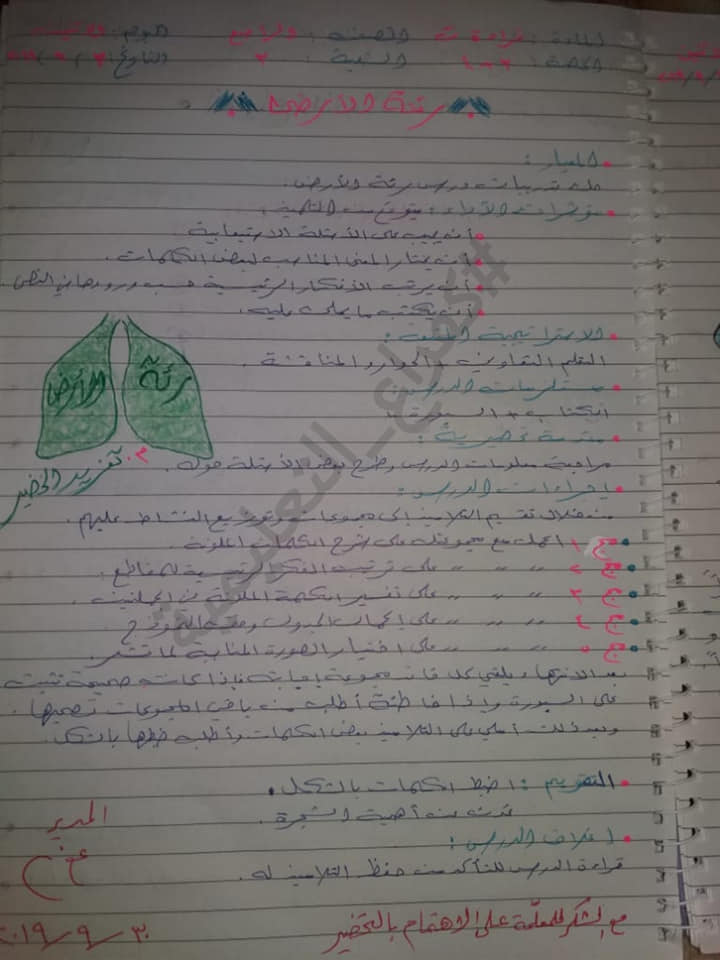 المادة: قراءة الصف: الرابع اليوم:
الحصة: الشعبة: التاريخ:
رئة الأرض
المعيار:
حل تدريبات درس رئة الأرض.
مؤشرات الأداء: يتوقع من التلميذ:
أن يجيب على الأسئلة الاستيعابية
أن يختار المعنى المناسب لبعض الكلمات.
أن يرتب الأفكار الرئيسية حسب ورودها في النص.
أن يكتب ما يملى عليه.
الاستراتيجية
التعلم التعاوني والحوار والمناقشة.
مستلزمات الدرس:
الكتاب + السبورة
رئة الأرض
مقدمة تحضيرية:
مراجعة معلومات الدرس وطرح بعض الأسئلة حوله.
م. تغريد الخضير
إجراءات الدرس:
من خلال تقسيم التلاميذ إلى مجموعات وتوزيع النشاط عليهم.
مج ١ اعمل مع مجموعتك على شرح الكلمات الملونة.
مج ٢ ,, ,, ,, على ترتيب الفكر الرئيسية للمقاطع.
مج ٣ ,, ,, ,, على تفسير الكلمة الملونة في الجملتين.
مج ٤ ,, ,, ,, على إكمال الجدول وفق النموذج
مج ٥ ,, ,, ,, على اختيار الصورة المناسبة
بعد الانتهاء يلقي كل قائد مجموعة إجابته فإذا كانت صحيحة تثبت
على السبورة وإذا خاطئة أطلب من باقي المجموعات تصحيحها.
وبعد ذلك أملي على التلاميذ بعض الكلمات وأطلب ضبطها بالشكل.
التقويم: اضبط الكلمات بالشكل.
تحدث عن أهمية الشجرة.
إغلاق الدرس:
قراءة الدرس للتأكد من حفظ التلاميذ له.
المدير
مع الشكر للمعلمة على الاهتمام بالتحضير
٣٠/٩/٢٠١٩